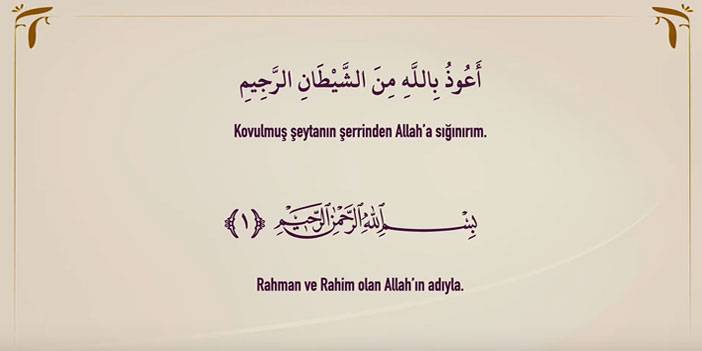 أَعُوذُ بِاللَّهِ مِنَ الشَّيْطَانِ الرَّجِيمِ
Kovulmuş şeytanın şerrinden Allah'a sığınırım.
بِسْمِ اللّٰهِ الرَّحْمٰنِ الرَّحِيْمِ ﴿١﴾
Rahman ve Rahim olan Allah'ın adıyla.